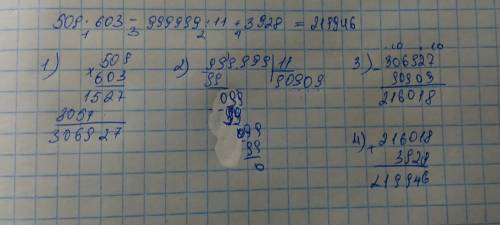 509 · 603 - 999999 : 11 + 3928 = 219946
1 3 2 4
1) 509 2) 999999 | 11 3) - 306927
× 603 99 90909 90909
1527 099 216018
3054 99
306927 099 4) + 216018
99 3928
0 219946